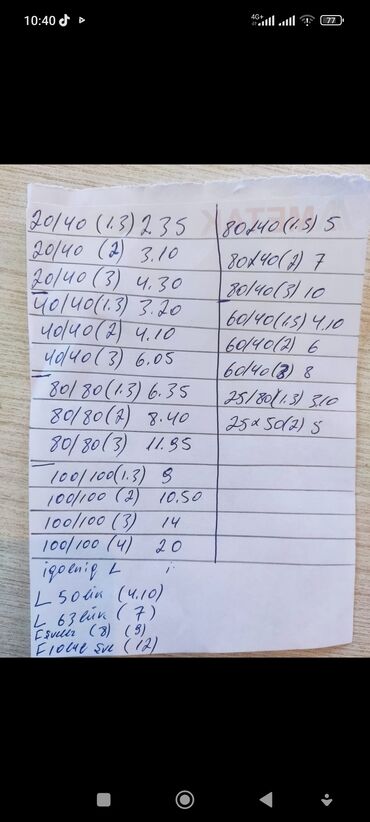 10:40
4G+
77
METAK
20/40 (1.3) 2.35
20/40 (2) 3.10
20/40 (3) 4.30
40/40 (1.3) 3.20
40/40 (2) 4.10
40/40 (3) 6.05
80/80 (1.3) 6.35
80/80 (2) 8.40
80/80 (3) 11.95
100/100 (1.3) 9
100/100 (2) 10.50
100/100 (3) 14
100/100 (4) 20
L
L 50lik (4.10)
L 63lük (7)
(8) (9)
(12)
80x40 (1.5) 5
80x40 (2) 7
80/40 (3) 10
60/40 (1.5) 4.10
60/40 (2) 6
60/40 (3) 8
25/80 (1.3) 3.10
25x50 (2) 5